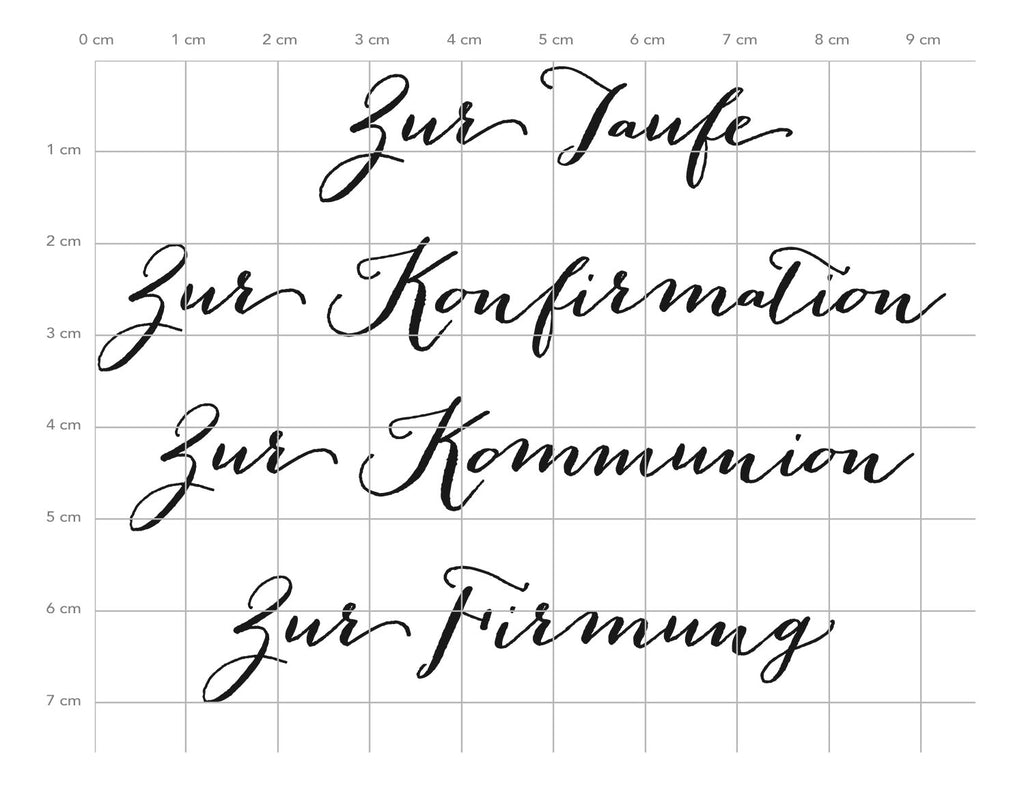 0 cm 1 cm 2 cm 3 cm 4 cm 5 cm 6 cm 7 cm 8 cm 9 cm
Zur Taufe
1 cm
2 cm
Zur Konfirmation
3 cm
4 cm
Zur Kommunion
5 cm
6 cm
Zur Firmung
7 cm